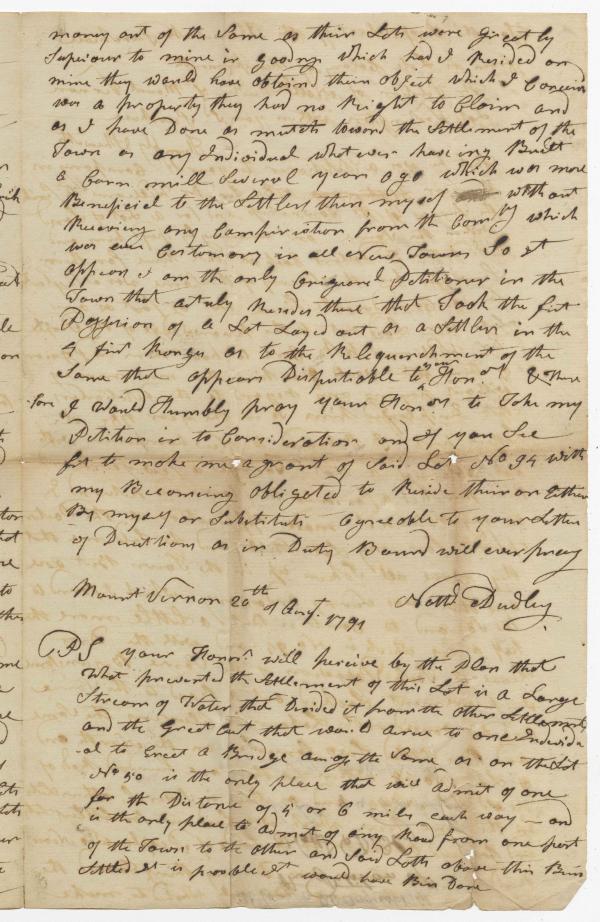 money out of the Same as their Lots were Greatly
Superiour to mine in goodnes which had I Resided on
mine they would have obtaind their object which I Conceive
was a property they had no Right to Claim and
as I have Done as mutch toward the Settlement of the
Town as any Individual what ever haveing Built
a Corn mill Several years ago which was more
Beneficial to the Settlers then myself without
Receiving any Compensation from the Comty which
was ever Costomary in all New Towns So it
appears I am the only Origional Petitioner in the
Town that actuly Resides there that Took the first
Possesion of a Lot Layed out as a Settler in the
4 first Ranges as to the Relequenchment of the
Same that appears Disputiable to your Honors & there
fore I Would Humbly pray your Honors to Take my
Petition in to Consideration and If you See
fit to make me a grant of Said Lot No 94 with
my Becomeing obligated to Reside their on Either
By myself or Substitute agreeable to your Letter
of Directions as in Duty Bound will ever pray
Mount Vernon 20th of Augt. 1791 Nathl Dudley
PS your Honors will perceive by the Plan that
What prevented the Settlement of this Lot is a Large
Stream of Water that Divided it from the other Settlements
and the Great Cost that would arise to one Individu
al to Erect a Bridge a the Same as on the Lot
No 50 is the only place that will Admit of one
for the Distance of 5 or 6 mile each way - and
is the only place to Admit of any Road from one part
of the Town to the other and Said Lotts above this Bin
Settled It is proble It would have Bin Done